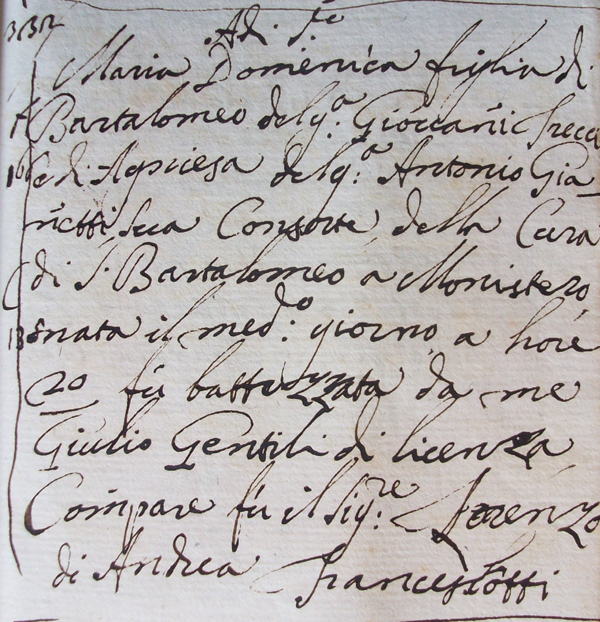 Adi d.to
Maria Domenica figlia di
Bartalomeo del q.a Giovanni
e di Agniesa del q.a Antonio Gia
nietti sua Consorte della Cura
di S. Bartalomeo a Monistero
nata il med.o giorno a hore
20 fù battezzata da me
Giulio Gentili di licenza
Compare fù il sig.re Lorenzo
di Andrea Franceschotti